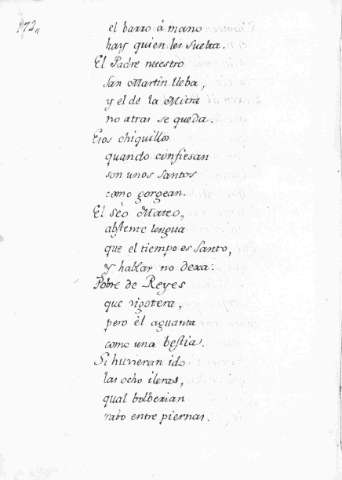 172,,
el barro à mano
hay quien les suelta.
El Padre nuestro
san Martin lleba,
y el de la Mitra
no atras se queda.
Los chiquillos
quando confiesan
son unos santos
como gorgean.
El séo Mateo,
absteme lengua
que el tiempo es santo,
y hablar no dexa:
Pobre de Reyes
que vigotera,
pero èl aguanta
como una bestia.
Si huvieran ido
las ocho ileras,
qual bolberian
rabo entre piernas.